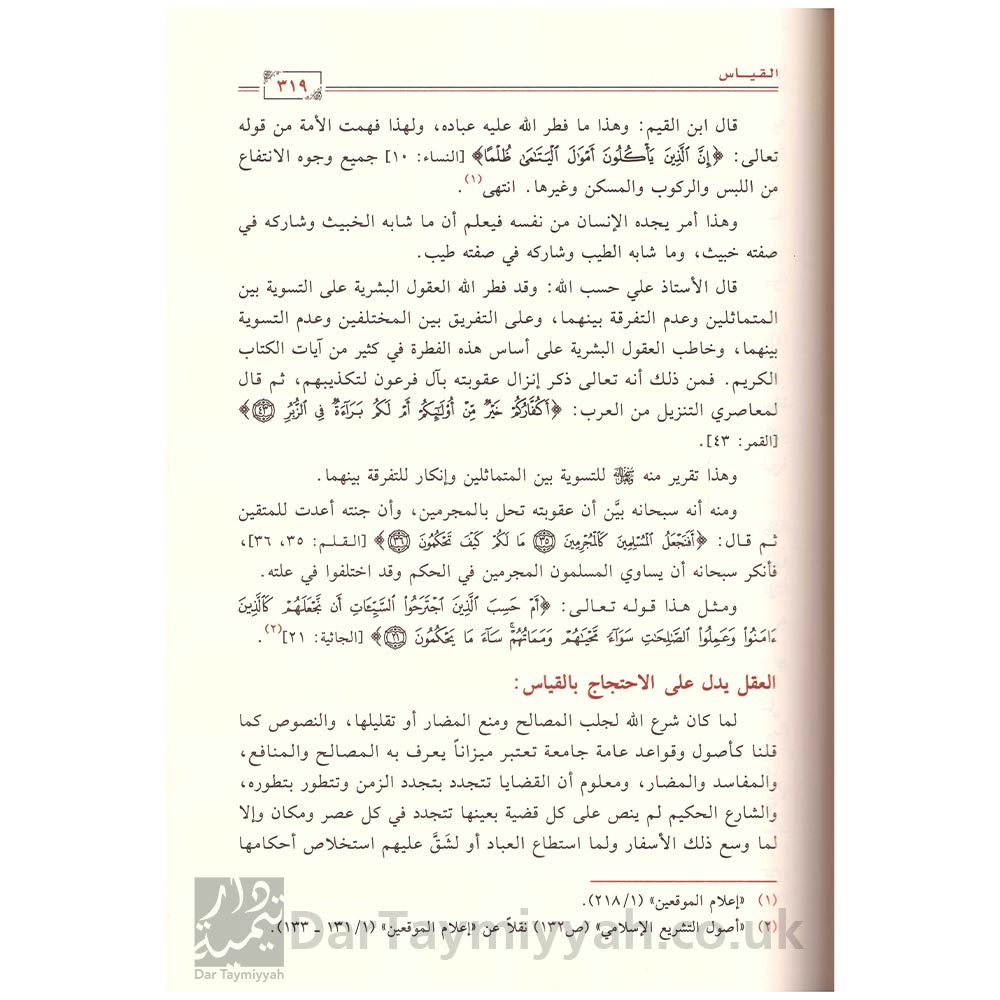 القيـاس
٣١٩
قال ابن القيم: وهذا ما فطر الله عليه عباده، ولهذا فهمت الأمة من قوله
تعالى: ﴿إِنَّ ٱلَّذِينَ يَأْكُلُونَ أَمْوَٰلَ ٱلْيَتَٰمَىٰ ظُلْمًا﴾ [النساء: ١٠] جميع وجوه الانتفاع
من اللبس والركوب والمسكن وغيرها. انتهى(١).
وهذا أمر يجده الإنسان من نفسه فيعلم أن ما شابه الخبيث وشاركه في
صفته خبيث، وما شابه الطيب وشاركه في صفته طيب.
قال الأستاذ علي حسب الله: وقد فطر الله العقول البشرية على التسوية بين
المتماثلين وعدم التفرقة بينهما، وعلى التفريق بين المختلفين وعدم التسوية
بينهما، وخاطب العقول البشرية على أساس هذه الفطرة في كثير من آيات الكتاب
الكريم. فمن ذلك أنه تعالى ذكر إنزال عقوبته بآل فرعون لتكذيبهم، ثم قال
لمعاصري التنزيل من العرب: ﴿أَكُفَّارُكُمْ خَيْرٌ مِّنْ أُو۟لَٰٓئِكُمْ أَمْ لَكُم بَرَآءَةٌ فِى ٱلزُّبُرِ ٤٣﴾
[القمر: ٤٣].
وهذا تقرير منه ﷺ للتسوية بين المتماثلين وإنكار للتفرقة بينهما.
ومنه أنه سبحانه بيَّن أن عقوبته تحل بالمجرمين، وأن جنته أعدت للمتقين
ثم قال: ﴿أَفَنَجْعَلُ ٱلْمُسْلِمِينَ كَٱلْمُجْرِمِينَ ٣٥ مَا لَكُمْ كَيْفَ تَحْكُمُونَ ٣٦﴾ [القلم: ٣٥، ٣٦]،
فأنكر سبحانه أن يساوي المسلمون المجرمين في الحكم وقد اختلفوا في علته.
ومثل هذا قوله تعالى: ﴿أَمْ حَسِبَ ٱلَّذِينَ ٱجْتَرَحُوا۟ ٱلسَّيِّـَٔاتِ أَن نَّجْعَلَهُمْ كَٱلَّذِينَ
ءَامَنُوا۟ وَعَمِلُوا۟ ٱلصَّٰلِحَٰتِ سَوَآءً مَّحْيَاهُمْ وَمَمَاتُهُمْ ۚ سَآءَ مَا يَحْكُمُونَ ٢١﴾ [الجاثية: ٢١](٢).
العقل يدل على الاحتجاج بالقياس:
لما كان شرع الله لجلب المصالح ومنع المضار أو تقليلها، والنصوص كما
قلنا كأصول وقواعد عامة جامعة تعتبر ميزاناً يعرف به المصالح والمنافع،
والمفاسد والمضار، ومعلوم أن القضايا تتجدد بتجدد الزمن وتتطور بتطوره،
والشارع الحكيم لم ينص على كل قضية بعينها تتجدد في كل عصر ومكان وإلا
لما وسع ذلك الأسفار ولما استطاع العباد أو لشَقَّ عليهم استخلاص أحكامها
(١) «إعلام الموقعين» (٢١٨/١).
(٢) «أصول التشريع الإسلامي» (ص١٣٢) نقلاً عن «إعلام الموقعين» (١٣١/١ ـ ١٣٣).
دار تيمية
Dar Taymiyyah
DarTaymiyyah.co.uk